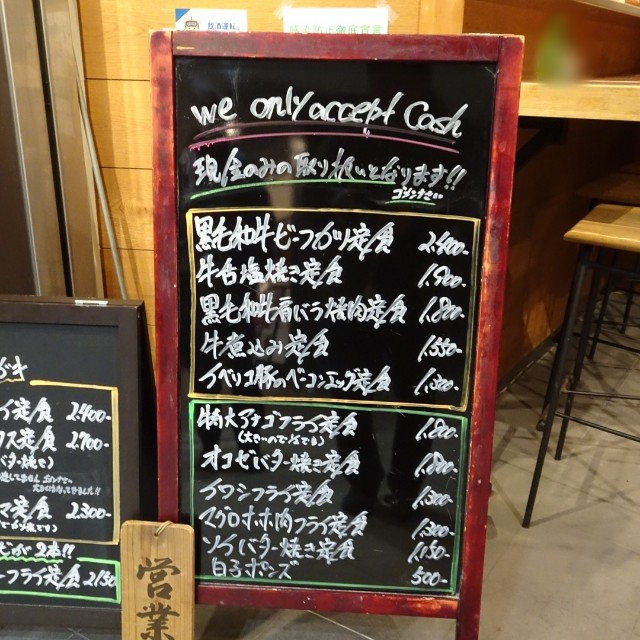 飲酒運転
感染防止徹底宣言
we only accept Cash
現金のみの取り扱いとなります!!
ゴメンナさい
黒毛和牛ビーフカツ定食 2.400-
牛舌塩焼き定食 1.900-
黒毛和牛肩バラ焼肉定食 1.800-
牛煮込み定食 1.550-
イベリコ豚のベーコンエッグ定食 1.300-
特大アナゴフライ定食 1.800-
オコゼバター焼き定食 1.800-
イワシフライ定食 1.300-
マグロホホ肉フライ定食 1.300-
ソイバター焼き定食 1.150-
白子ポンズ 500-
イ定食 2.400-
クス定食 2.700-
バター焼で)
マ定食 2.300-
2本!!
ーフライ定食 2.150
営業